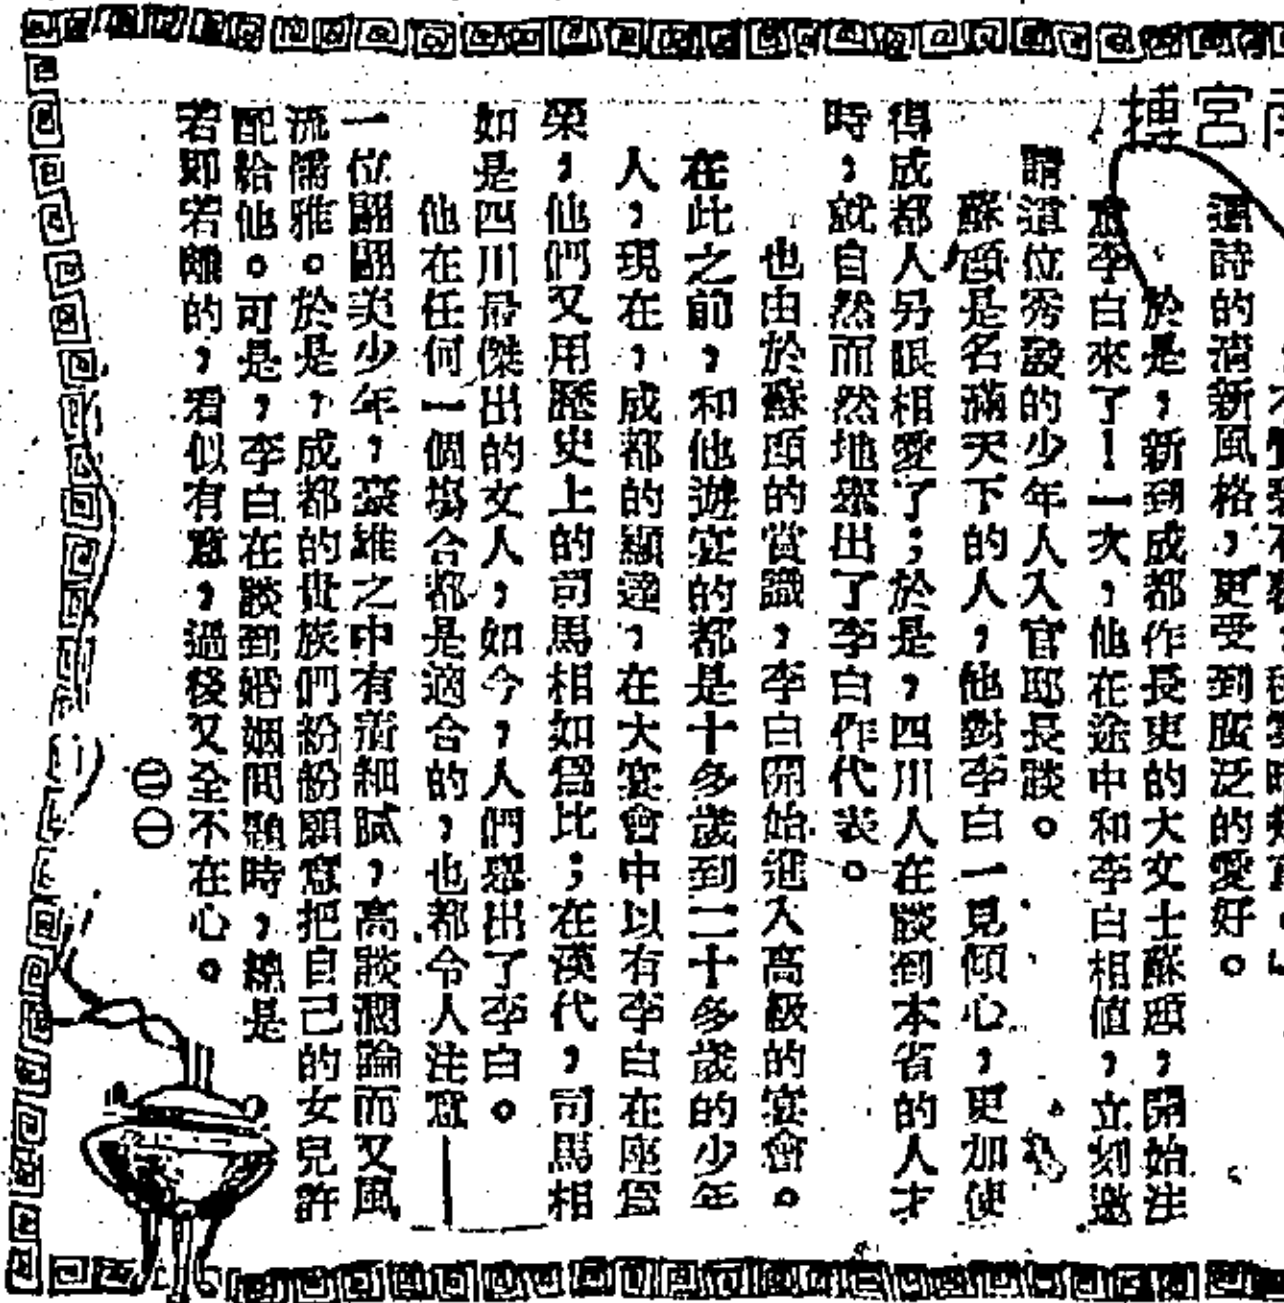 宮搏
這詩的清新風格，更受到廣泛的愛好。
於是，新到成都作長吏的大文士蘇頲，開始注
意李白來了！一次，他在途中和李白相值，立刻邀
請這位秀發的少年人入官邸長談。
蘇頲是名滿天下的人，他對李白一見傾心，更加使
得成都人另眼相愛了；於是，四川人在談到本省的人才
時，就自然而然地舉出了李白作代表。
也由於蘇頲的賞識，李白開始進入高級的宴會。
在此之前，和他遊宴的都是十多歲到二十多歲的少年
人，現在，成都的顯達，在大宴會中以有李白在座爲
榮，他們又用歷史上的司馬相如爲比；在漢代，司馬相
如是四川最傑出的女人，如今，人們舉出了李白。
他在任何一個場合都是適合的，也都令人注意——
一位翩翩美少年，豪雄之中有着細膩，高談濶論而又風
流儒雅。於是，成都的貴族們紛紛願意把自己的女兒許
配給他。可是，李白在談到婚姻問題時，總是
若即若離的，看似有意，過後又全不在心。
㊁㊀